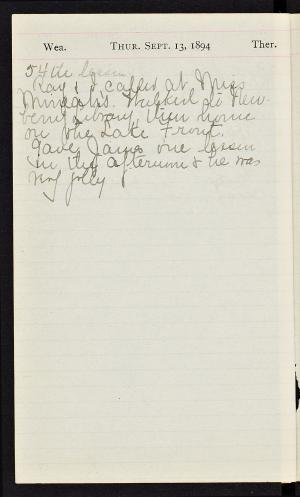 Wea. THUR. SEPT. 13, 1894 Ther.
54th lesson
Ray & I called at Miss
. Walked to New-
berry Library, then home
on the Lake Front.
Gave James one lesson
in the afternoon & he was
very jolly